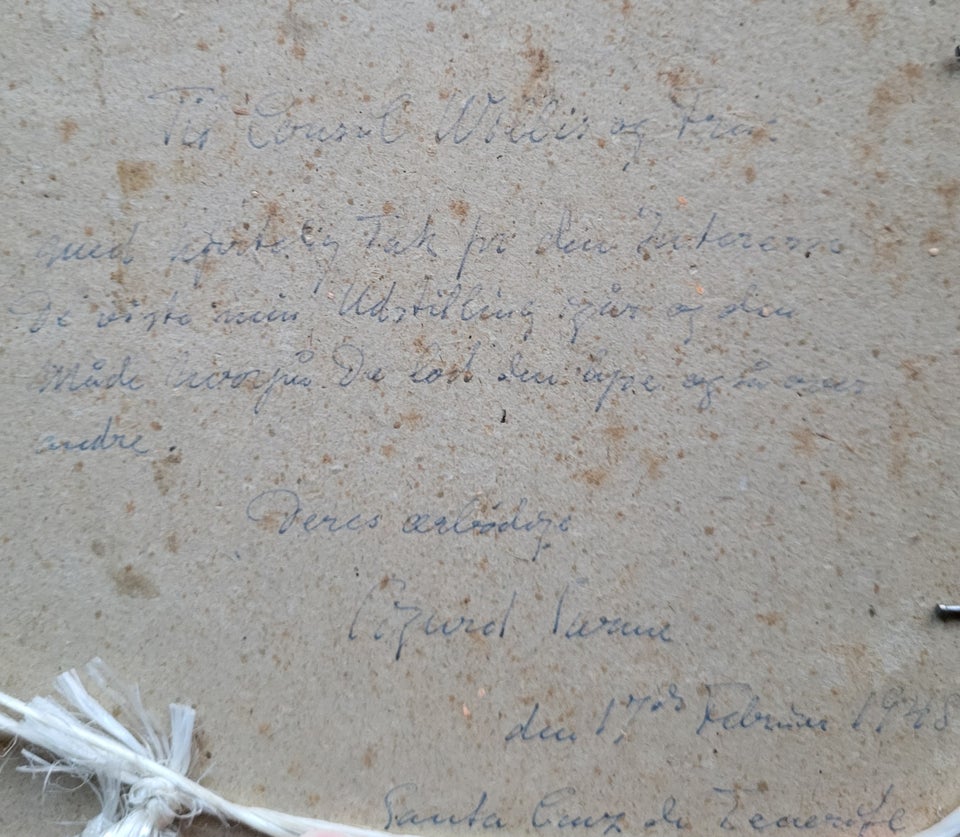 Til Consul Willis og Frue
med hjertelig Tak for den Interesse
De viste min Udstilling igår og den
Måde hvorpå De lod den også over
andre.
Deres ærbødige
Sigurd
den 17de Februar 1948
Santa Cruz de Tenerife